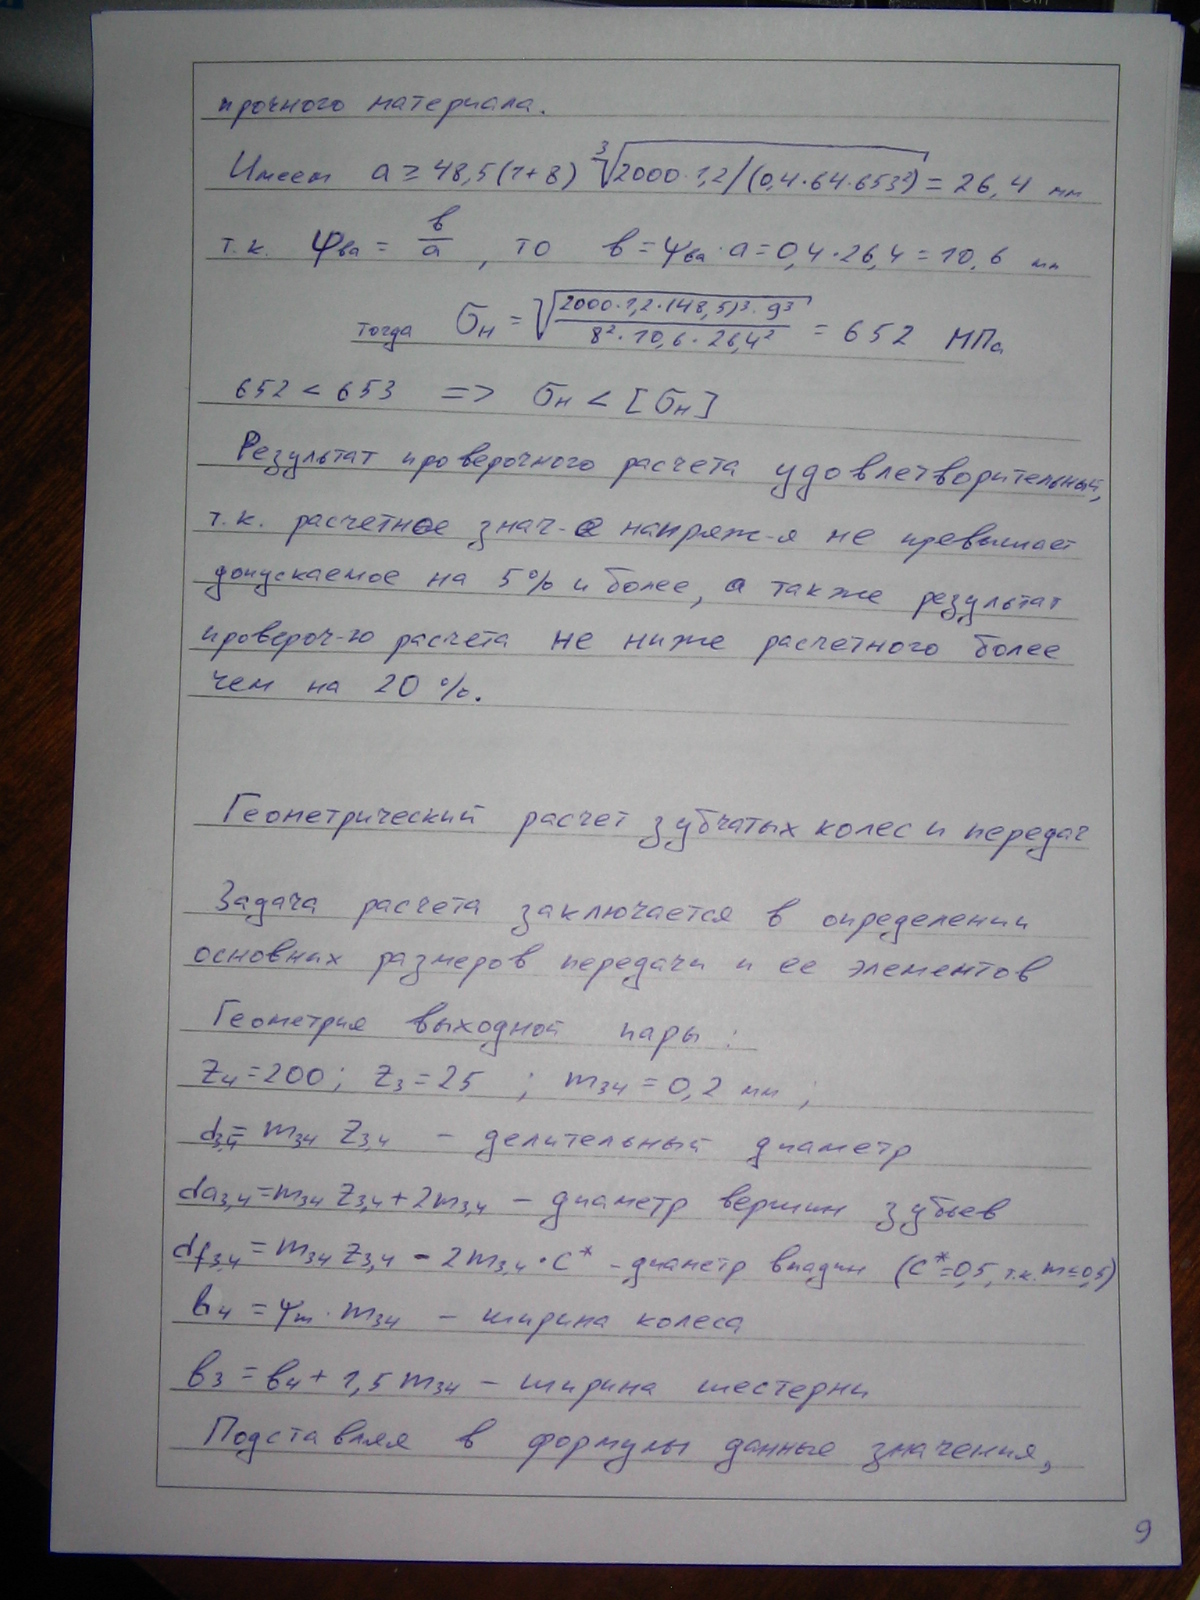 прочного материала.
Имеем a ≥ 48,5(1+8) ∛2000·1,2/(0,4·64·653²) = 26,4 мм
т.к. ψва = в/a , то в = ψва · a = 0,4·26,4 = 10,6 мм
тогда σн = √(2000·1,2·(48,5)³·9³ / 8²·10,6·26,4²) = 652 МПа
652 < 653 => σн < [σн]
Результат проверочного расчета удовлетворительный,
т.к. расчетное знач-е напряж-я не превышает
допускаемое на 5% и более, а также результат
провероч-го расчета не ниже расчетного более
чем на 20%.
Геометрический расчет зубчатых колес и передач
Задача расчета заключается в определении
основных размеров передачи и ее элементов
Геометрия выходной пары:
z4=200; z3=25 ; m34 = 0,2 мм ;
d3,4= m34 z3,4 – делительный диаметр
da3,4=m34 z3,4+2m3,4 – диаметр вершин зубьев
df3,4 = m34 z3,4 - 2m3,4·c* - диаметр впадин (c*=0,5, т.к. m≤0,5)
в4 = ψm·m34 – ширина колеса
в3 = в4 + 1,5m34 – ширина шестерни
Подставляя в формулы данные значения,
9